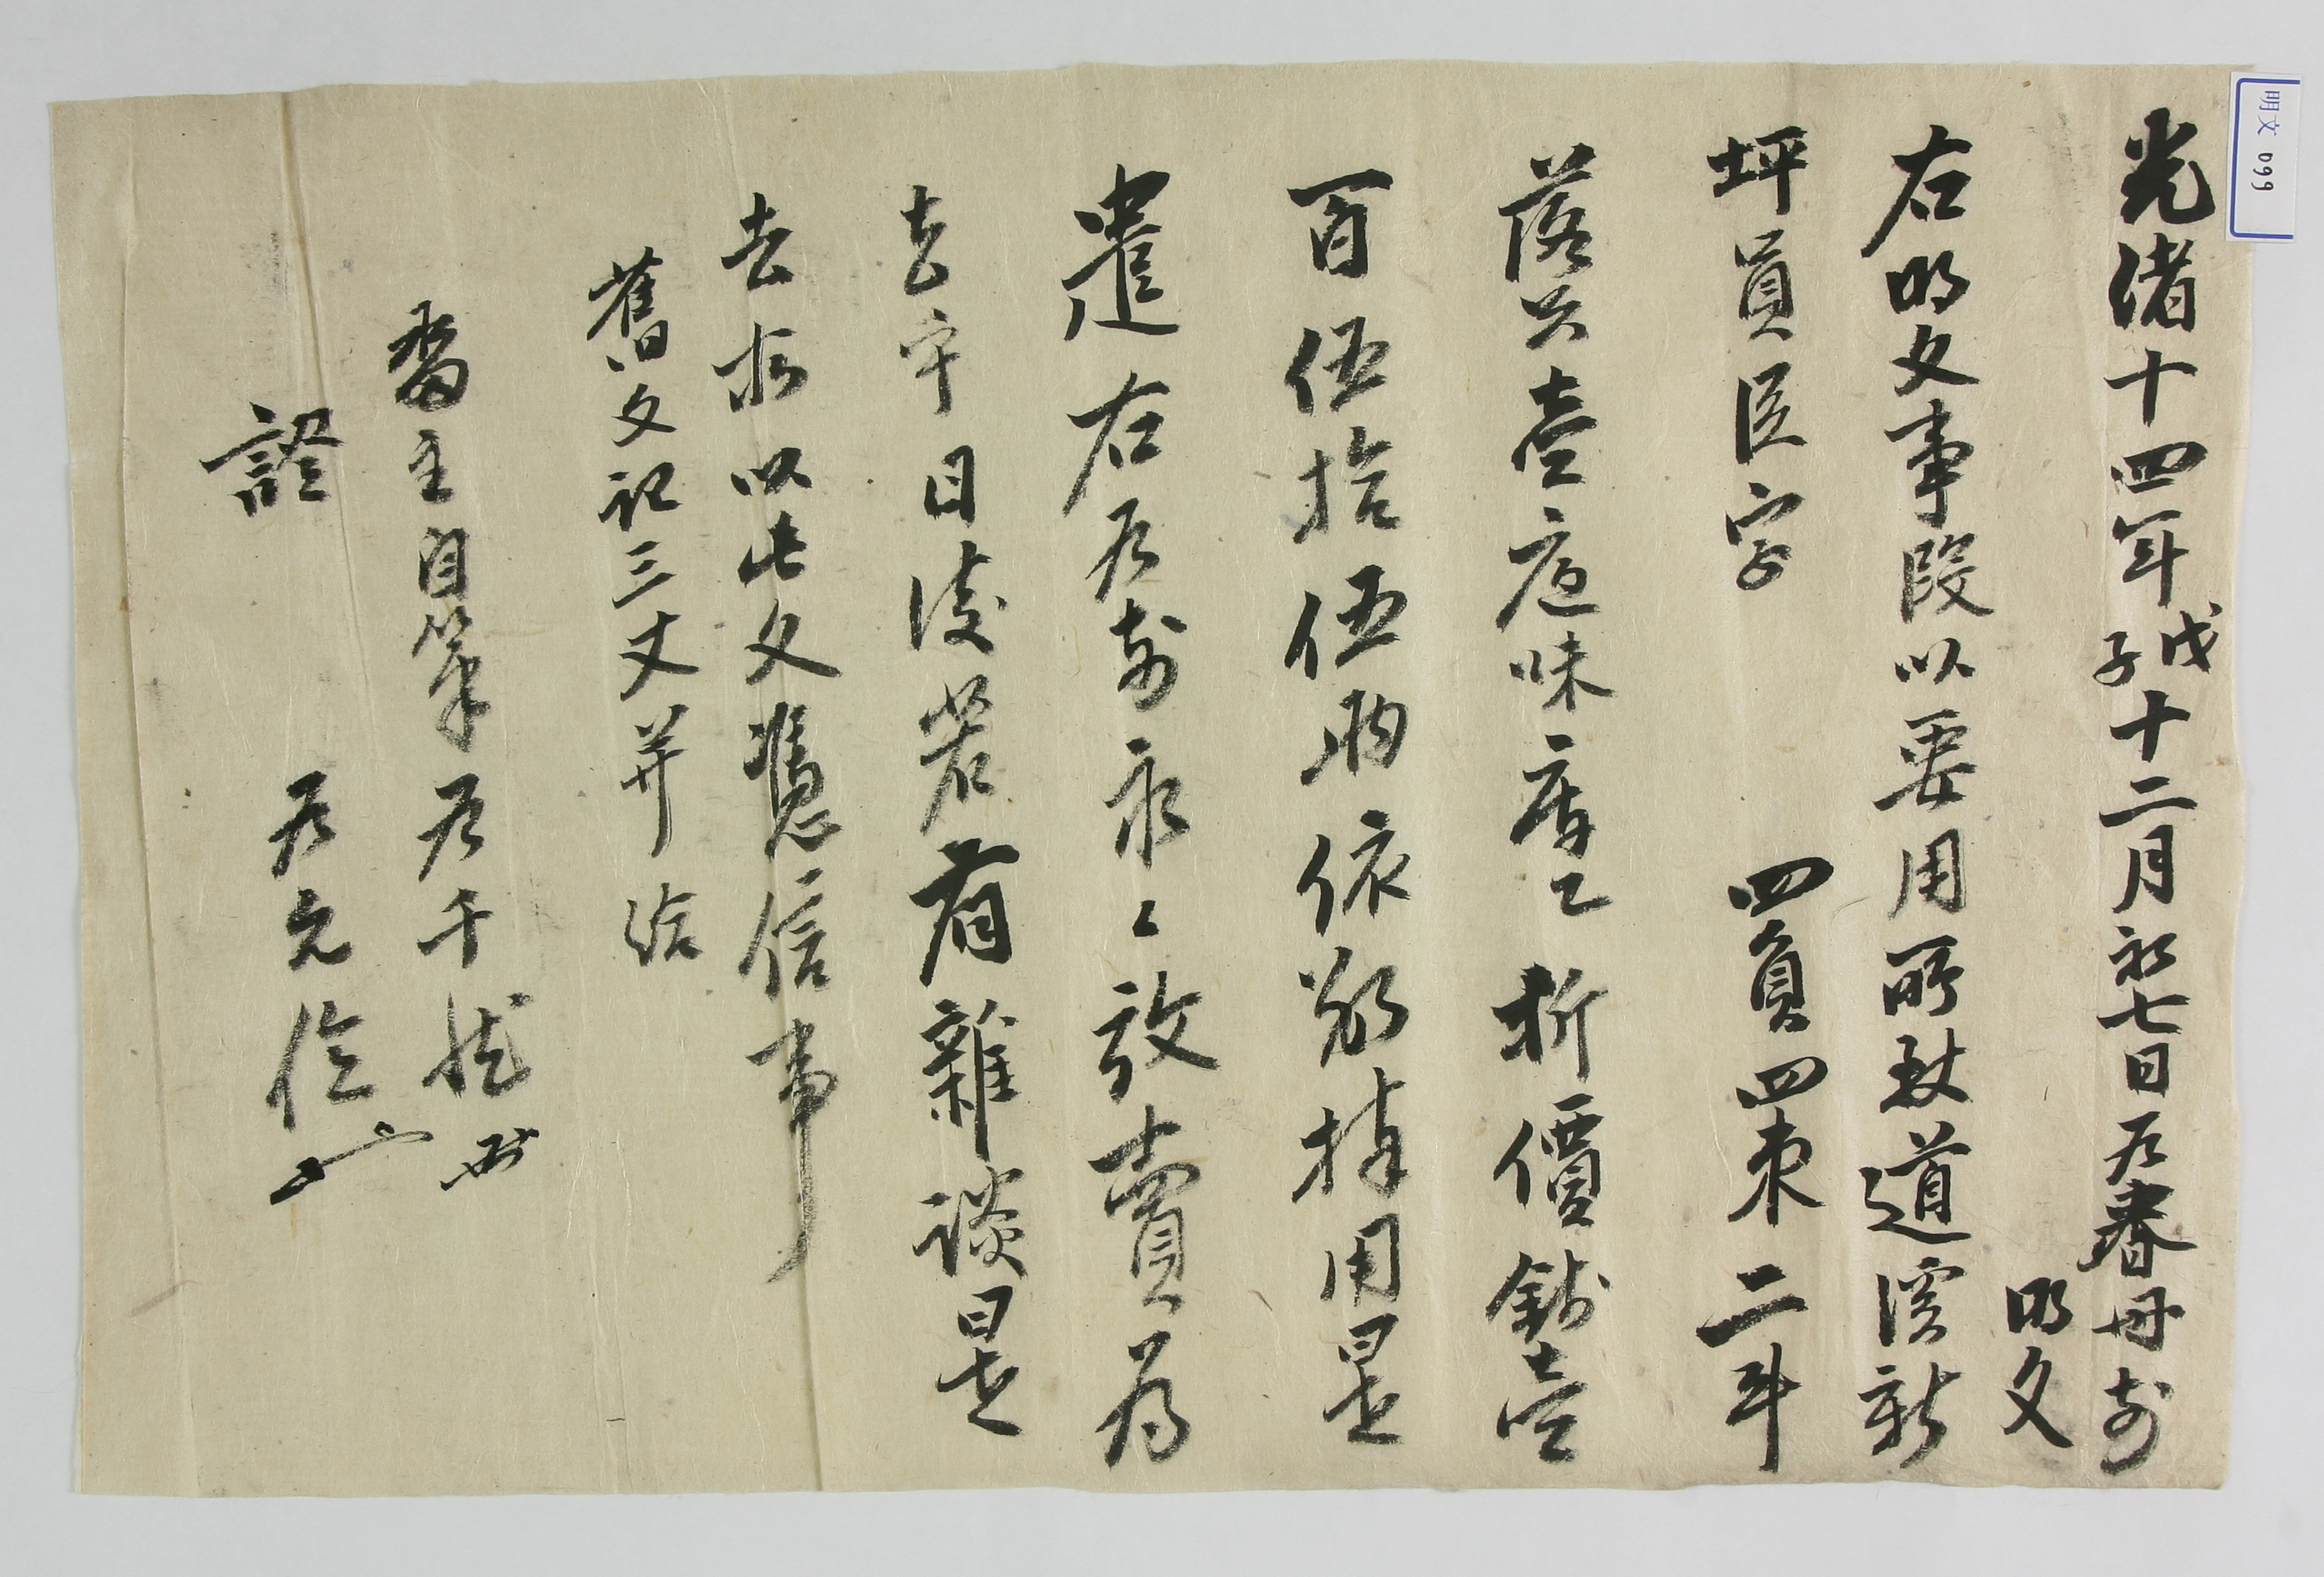 光緖十四年戊子十二月初七日尹春丹前
明文
右明文事段以要用所致道溪新
坪員臣字 四負四束二斗
落只壹庫味庫乙折價錢壹
百伍拾伍兩依數捧用是
遣右尹前永〻放賣爲
去乎日後若有雜談是
去等以此文憑信事
舊文記三丈并給
畓主自筆尹千
證 尹允
明文 099